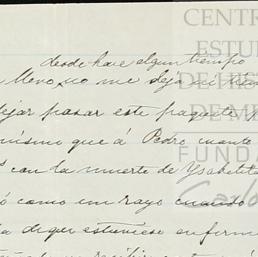 CENTR
ESTU
DE HIS
DE M
FUND
Carlo
desde hace algun tiempo
llevo, no me deja ni
dejar pasar este paquete
mismo que á Pedro cuanto
con la muerte de Ysabelita
ó como un rayo cuando
de que estuviese enferm